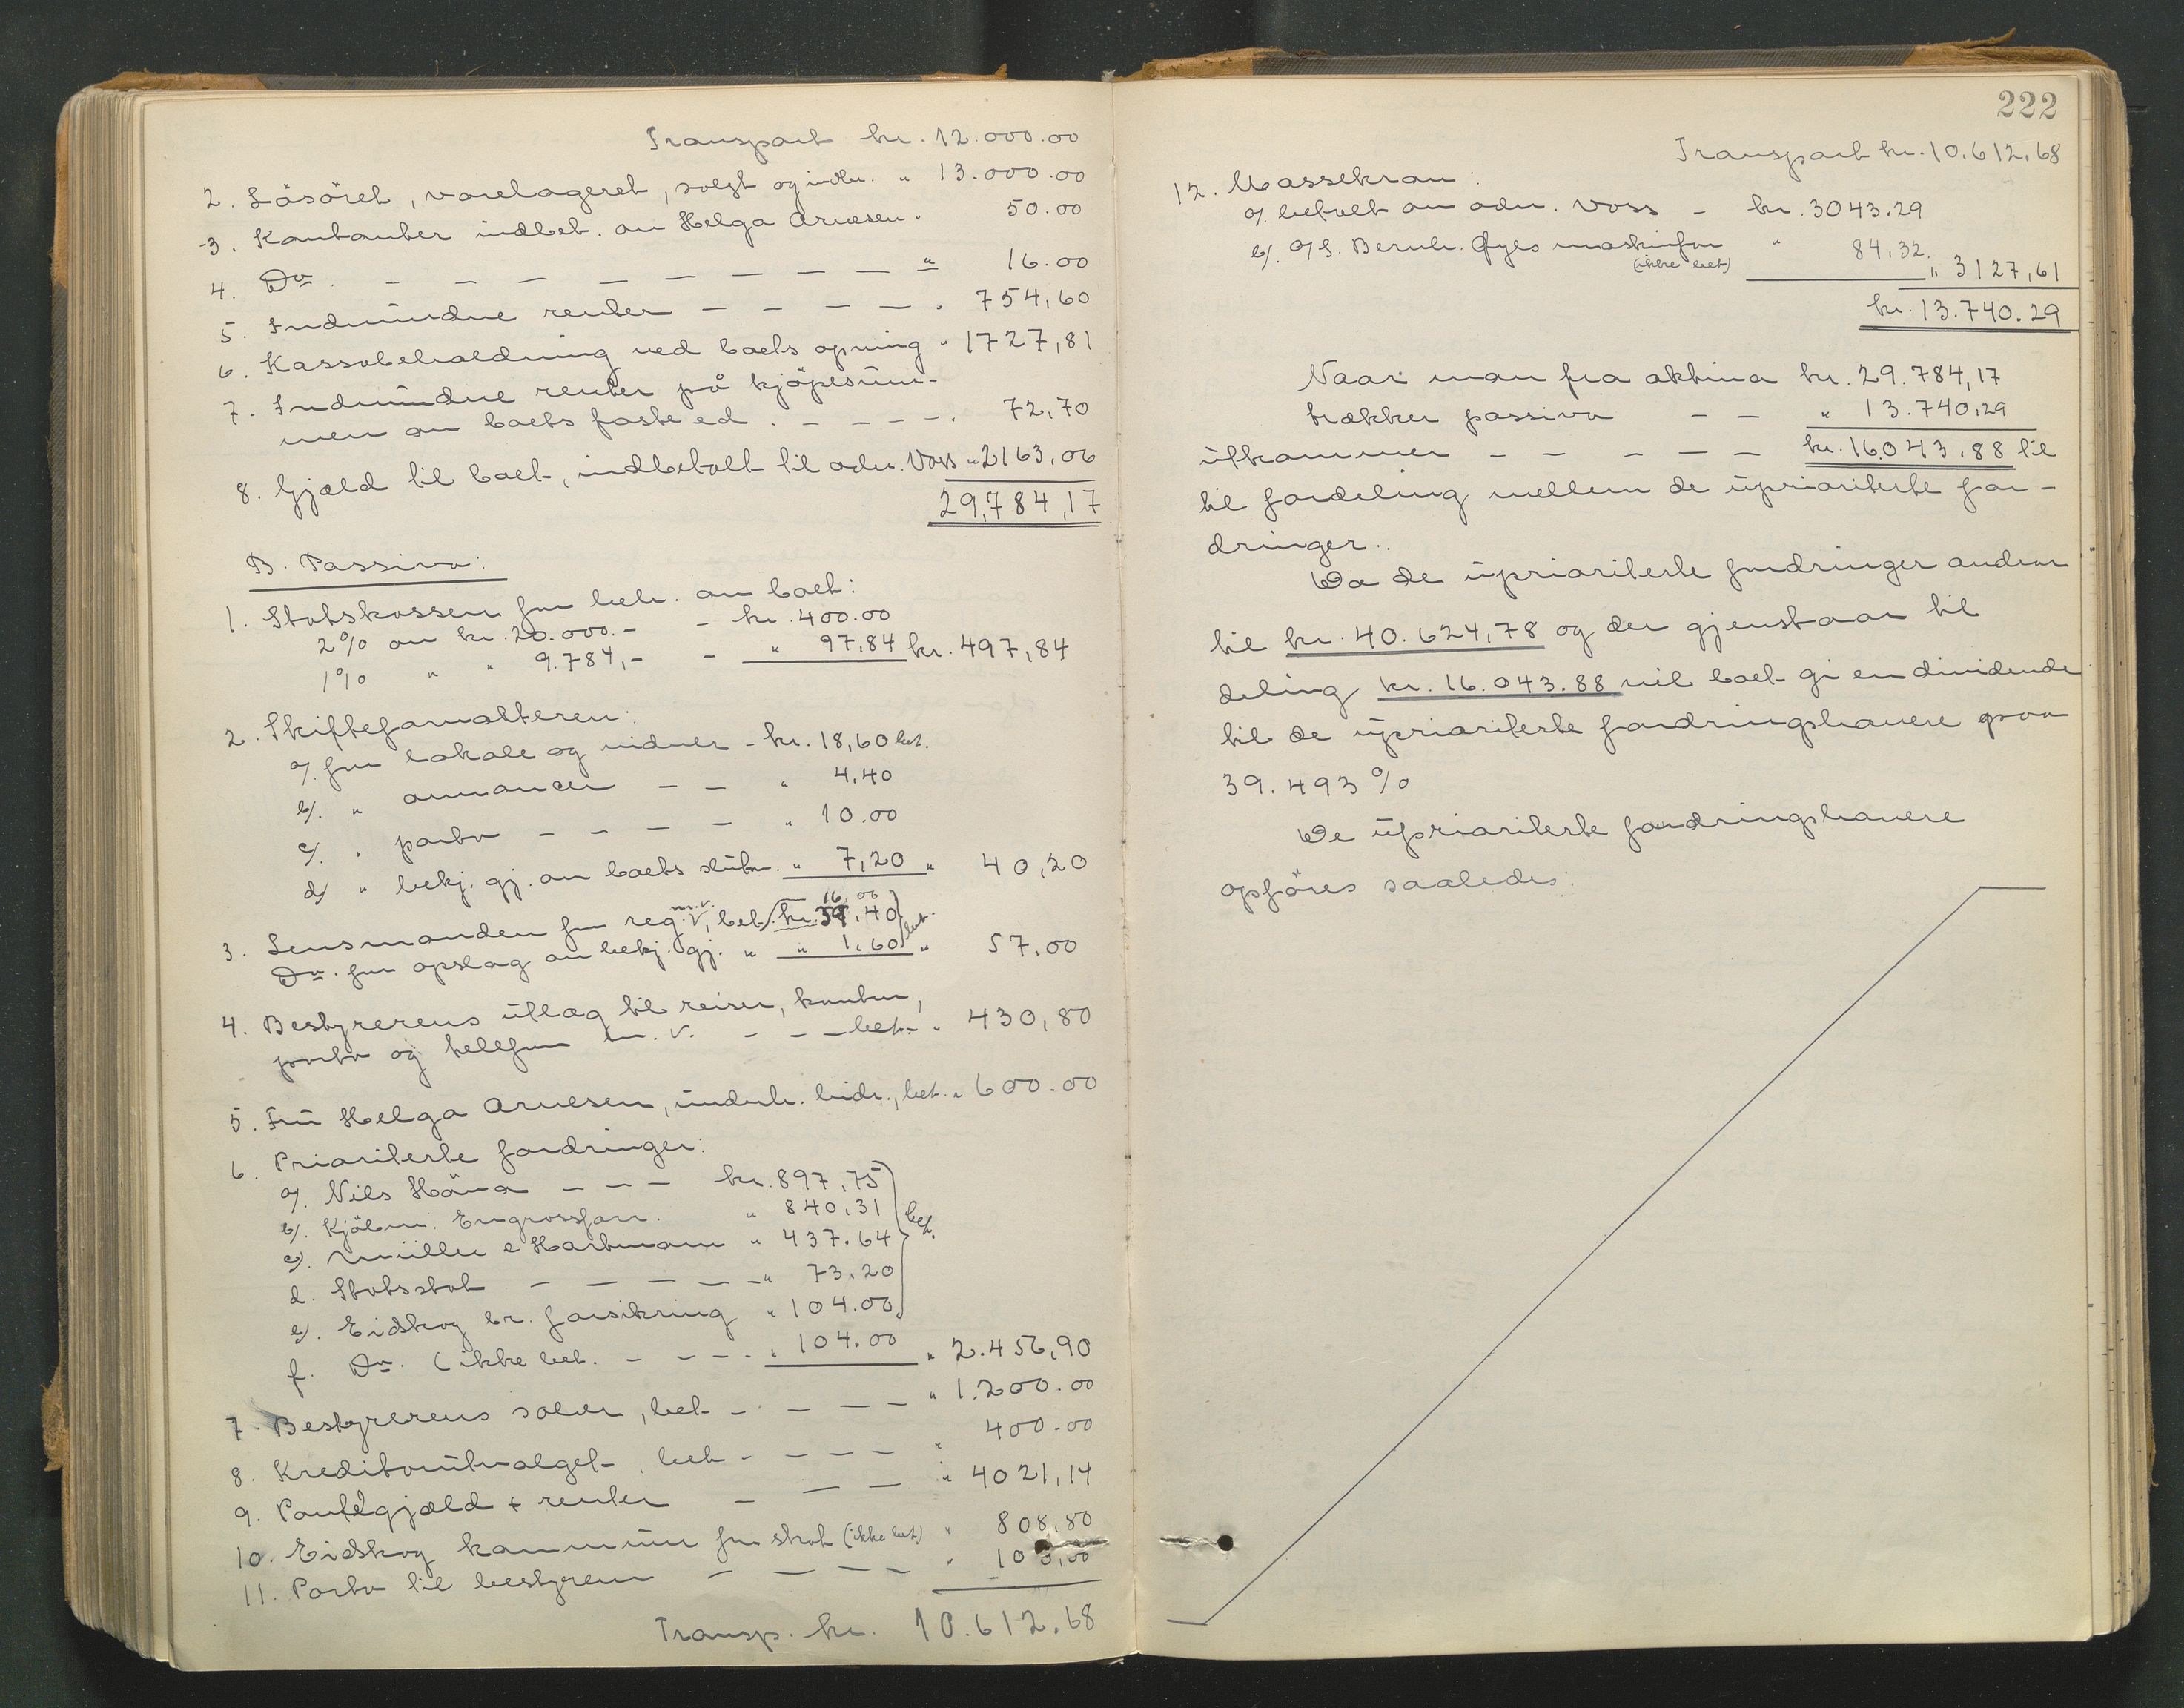 Transport kr. 12.000.00
2. Lösöret, varelageret, solgt og indbr. " 13.000.00
3. Kontanter indbet. av Helga Arnesen. 50.00
4. Do. — — — — — — — " 16.00
5. Indvundne renter — — — — . 754,60
6. Kassabeholdning ved boets åpning " 1727,81
7. Indvundne renter på kjöpesum-
men av boets faste ed. — — — —. 72,70
8. Gjæld til boet, indbetalt til adv. Voss " 2163,06
29,784,17
B. Passiva:
1. Statskassen for beh. av boet:
2% av kr. 20.000.- - kr. 400.00
1% " " 9.784,- - " 97,84 kr. 497,84
2. Skifteforvalteren:
a/. for lokale og vidner - kr. 18,60 bet.
b/. " annoncer — — " 4,40
c/. " porto — — — — " 10.00
d/ " bekj. gj. av boets slutn. " 7,20 " 40,20
3. Lensmanden for reg. m.v. V, bet. kr. 40
16,00
Do. for opslag av bekj. gj. " " 1,60 bet. " 57.00
4. Bestyrerens utlæg til reiser, kontor,
porto og telefon m.v. — — — bet. " 430,80
5. Fru Helga Arnesen, underh. bidr., bet. " 600.00
6. Prioriterte fordringer:
a/. Nils Håna — — — kr. 897,75
b/. Kjölm. Engrosforr. " 840,31
c/. Müller & Hartmann " 437.64 bet.
d. Statsskat — — — — — " 73.20
e/. Eidskog br. forsikring " 104.00
f. Do. (ikke bet. — — — . " 104.00 " 2.456,90
7. Bestyrerens salær, bet — — — — " 1.200.00
8. Kreditorutvalget, bet — — — — " 400.00
9. Pantegjæld + renter — — — " 4021,14
10. Eidskog kommune for skat (ikke bet) " 808,80
11. Porto til bestyreren — — — — " 100,00
Transp. kr. 10.612.68
222
Transport kr. 10.612,68
12. Massekrav:
a/. betalt av adv. Voss - kr. 3043.29
b/. A/S. Bernh. Øyes maskinforr " 84,32.
(ikke bet) " 3127,61
kr. 13.740.29
Naar man fra aktiva kr. 29.784,17
trækker passiva — — " 13.740,29
utkommer — — — — — kr. 16.043,88 til
til fordeling mellem de uprioriterte for-
dringer..
Da de uprioriterte fordringer andrar
til kr. 40.624,78 og der gjenstaar til
deling kr. 16.043.88 vil boet gi en dividende
til de uprioriterte fordringshavere paa
39.493 %
De uprioriterte fordringshavere
opföres saaledes: